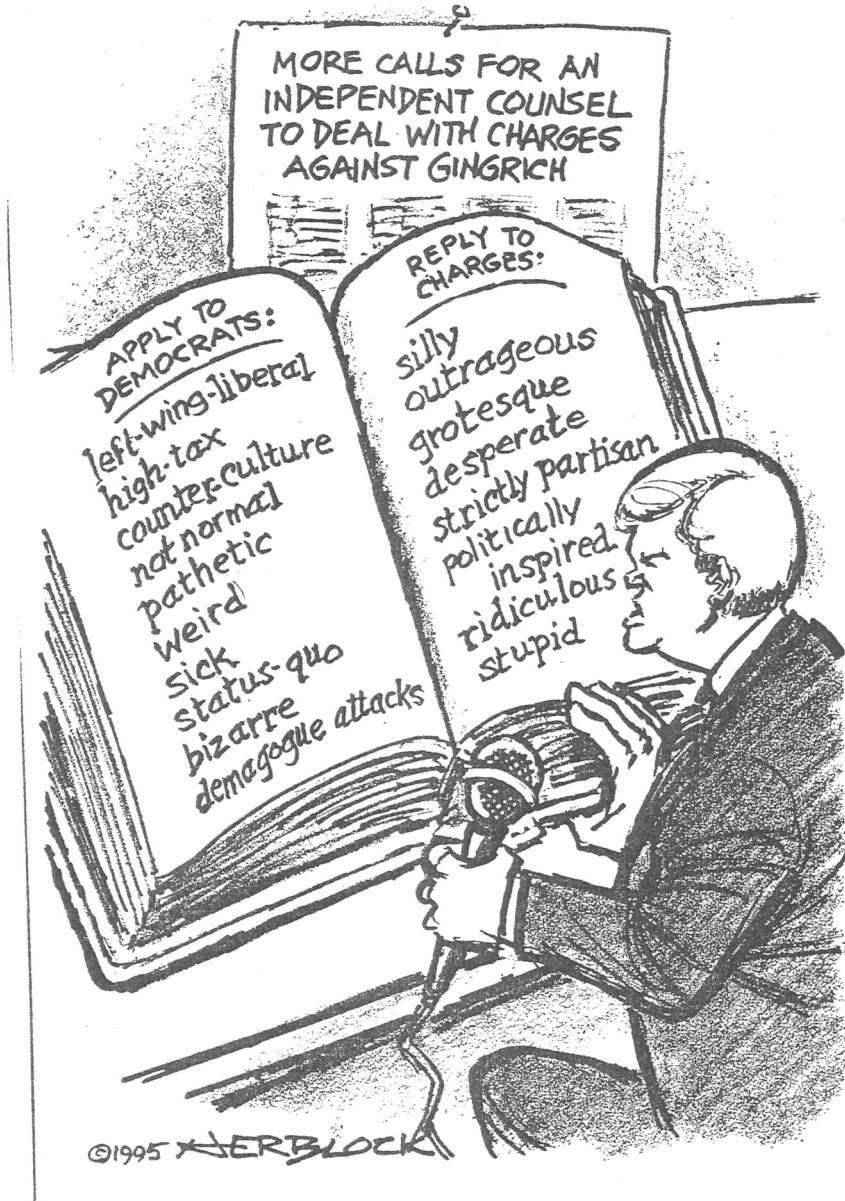 MORE CALLS FOR AN
INDEPENDENT COUNSEL
TO DEAL WITH CHARGES
AGAINST GINGRICH
APPLY TO
DEMOCRATS:
left-wing-liberal
high-tax
counter-culture
not normal
pathetic
weird
sick
status-quo
bizarre
demagogue attacks
REPLY TO
CHARGES:
silly
outrageous
grotesque
desperate
strictly partisan
politically
inspired
ridiculous
stupid
©1995 HERBLOCK